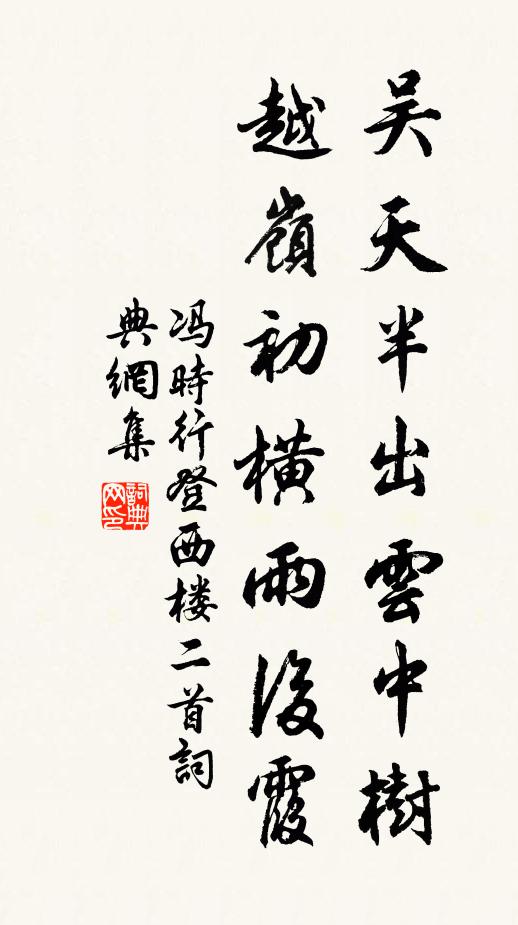 吴天半出雲中樹
越嶺初橫雨後霞
冯時行登西楼二首詞
典網集
詞典
网印